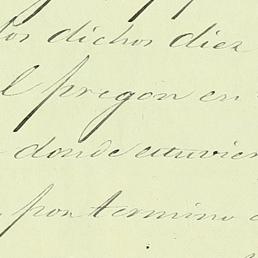 los dichos diez
l pregon en
donde estuvier
por termino